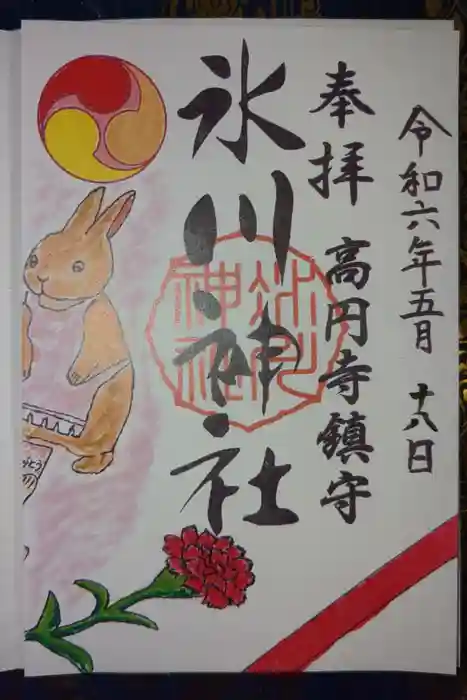 令和六年五月 十八日
奉拝 高円寺鎮守
氷川神社
氷川
神社
とう